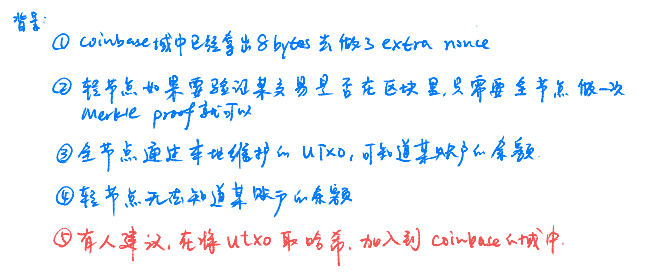 背景:
① coinbase域中已经拿出8bytes去做了extra nonce
② 轻节点如果要验证某交易是否在区块里,只需要全节点做一次
merkle proof就可以
③ 全节点通过本地维护的UTXO,可知道某账户的余额.
④ 轻节点无法知道某账户的余额
⑤ 有人建议,在将utxo取哈希,加入到coinbase的域中.